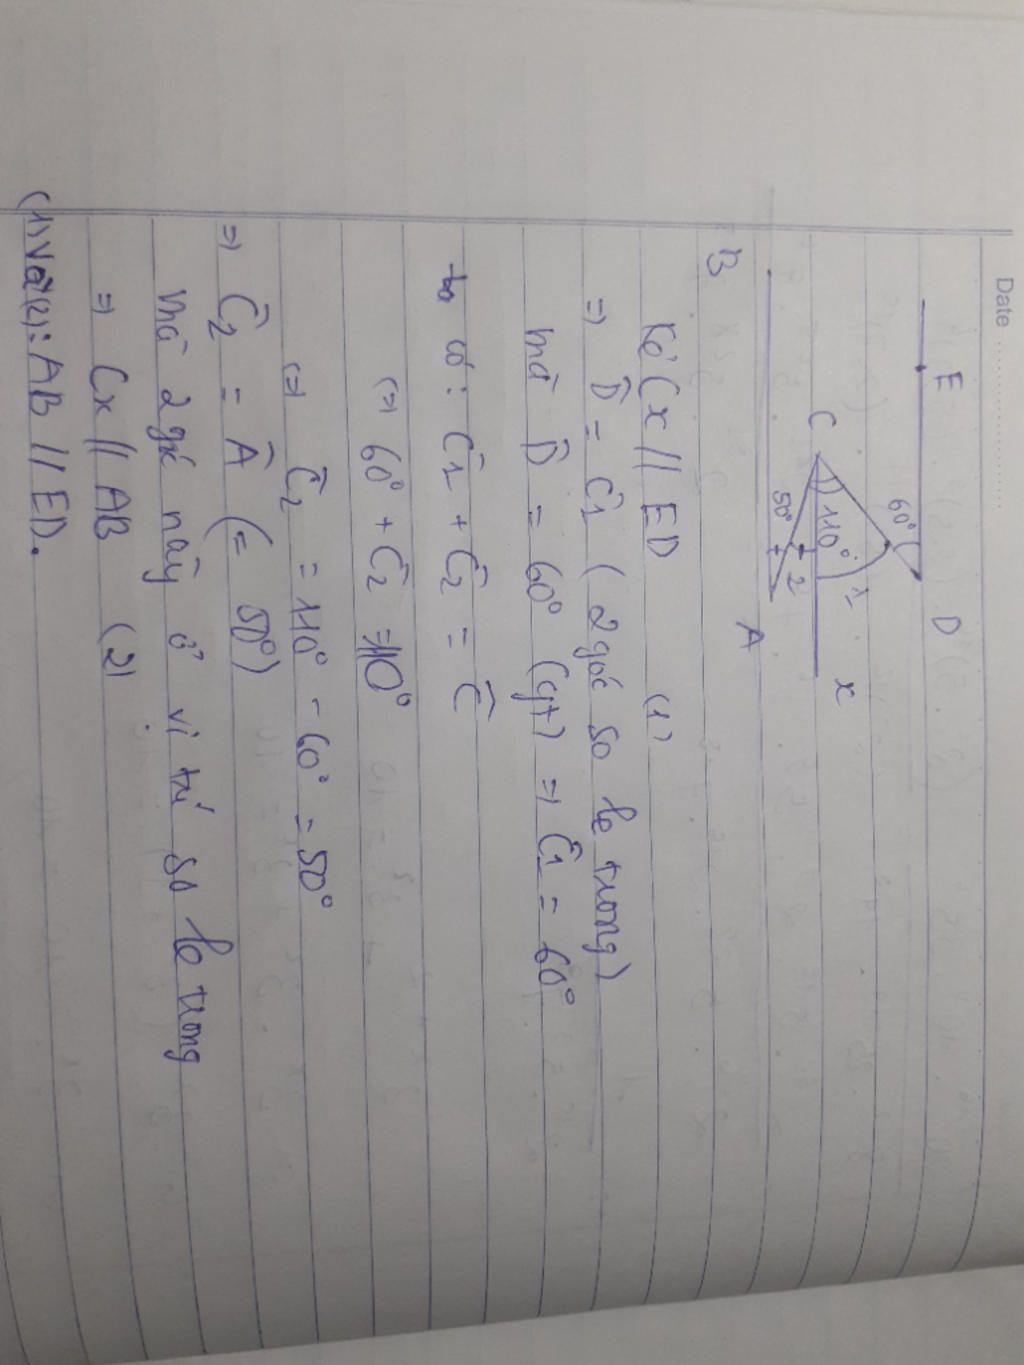 Date ........................
E D
60°
C 110° 1 x
2
50°
B A
Kẻ Cx // ED (1)
=> D̂ = Ĉ1 (2 góc so le trong)
mà D̂ = 60° (gt) => Ĉ1 = 60°
ta có: Ĉ1 + Ĉ2 = Ĉ
(=) 60° + Ĉ2 = 110°
(=) Ĉ2 = 110° - 60° = 50°
=> Ĉ2 = Â (= 50°)
mà 2 góc này ở vị trí so le trong
=> Cx // AB (2)
(1) và (2): AB // ED.